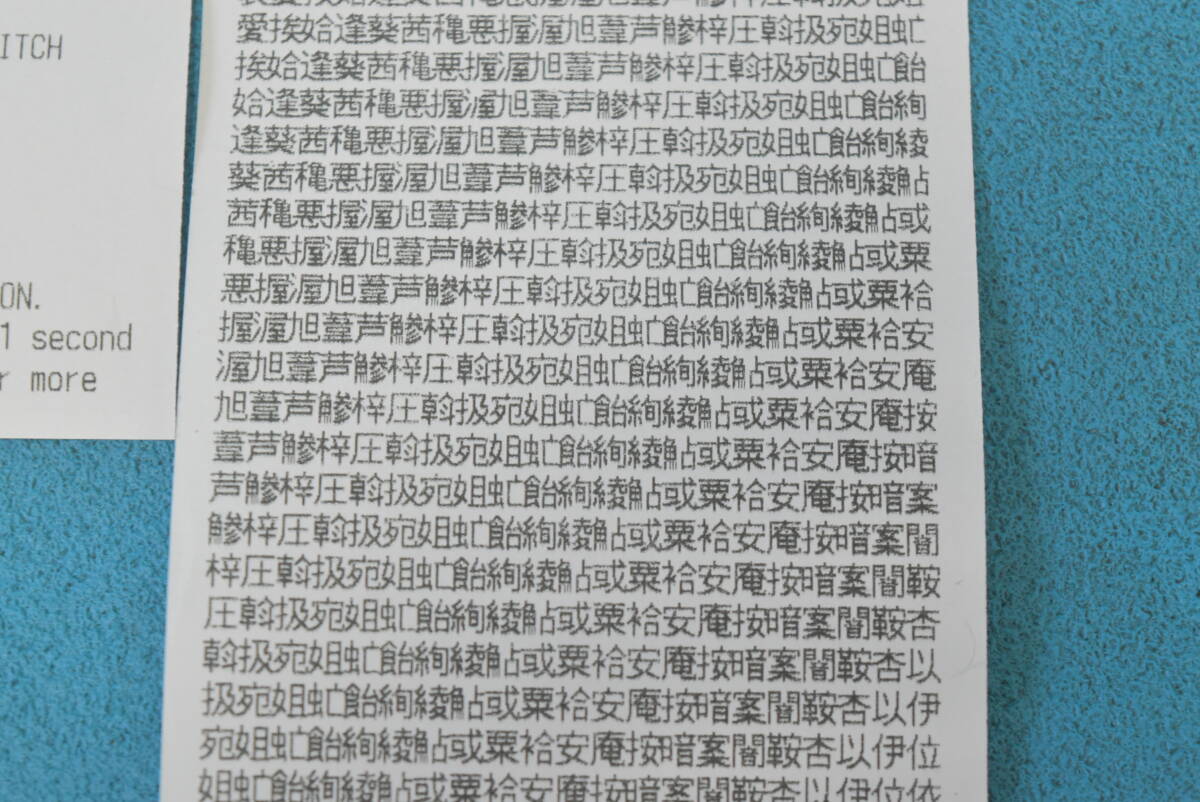 ITCH
ON.
1 second
r more
愛挨姶逢葵茜穐悪握渥旭葦芦鯵梓圧斡扱宛姐虻
挨姶逢葵茜穐悪握渥旭葦芦鯵梓圧斡扱宛姐虻飴
姶逢葵茜穐悪握渥旭葦芦鯵梓圧斡扱宛姐虻飴絢
逢葵茜穐悪握渥旭葦芦鯵梓圧斡扱宛姐虻飴絢綾
葵茜穐悪握渥旭葦芦鯵梓圧斡扱宛姐虻飴絢綾鮎
茜穐悪握渥旭葦芦鯵梓圧斡扱宛姐虻飴絢綾鮎或
穐悪握渥旭葦芦鯵梓圧斡扱宛姐虻飴絢綾鮎或粟
悪握渥旭葦芦鯵梓圧斡扱宛姐虻飴絢綾鮎或粟袷
握渥旭葦芦鯵梓圧斡扱宛姐虻飴絢綾鮎或粟袷安
渥旭葦芦鯵梓圧斡扱宛姐虻飴絢綾鮎或粟袷安庵
旭葦芦鯵梓圧斡扱宛姐虻飴絢綾鮎或粟袷安庵按
葦芦鯵梓圧斡扱宛姐虻飴絢綾鮎或粟袷安庵按暗
芦鯵梓圧斡扱宛姐虻飴絢綾鮎或粟袷安庵按暗案
鯵梓圧斡扱宛姐虻飴絢綾鮎或粟袷安庵按暗案闇
梓圧斡扱宛姐虻飴絢綾鮎或粟袷安庵按暗案闇鞍
圧斡扱宛姐虻飴絢綾鮎或粟袷安庵按暗案闇鞍杏
斡扱宛姐虻飴絢綾鮎或粟袷安庵按暗案闇鞍杏以
扱宛姐虻飴絢綾鮎或粟袷安庵按暗案闇鞍杏以伊
宛姐虻飴絢綾鮎或粟袷安庵按暗案闇鞍杏以伊位
姐虻飴絢綾鮎或粟袷安庵按暗案闇鞍杏以伊位依